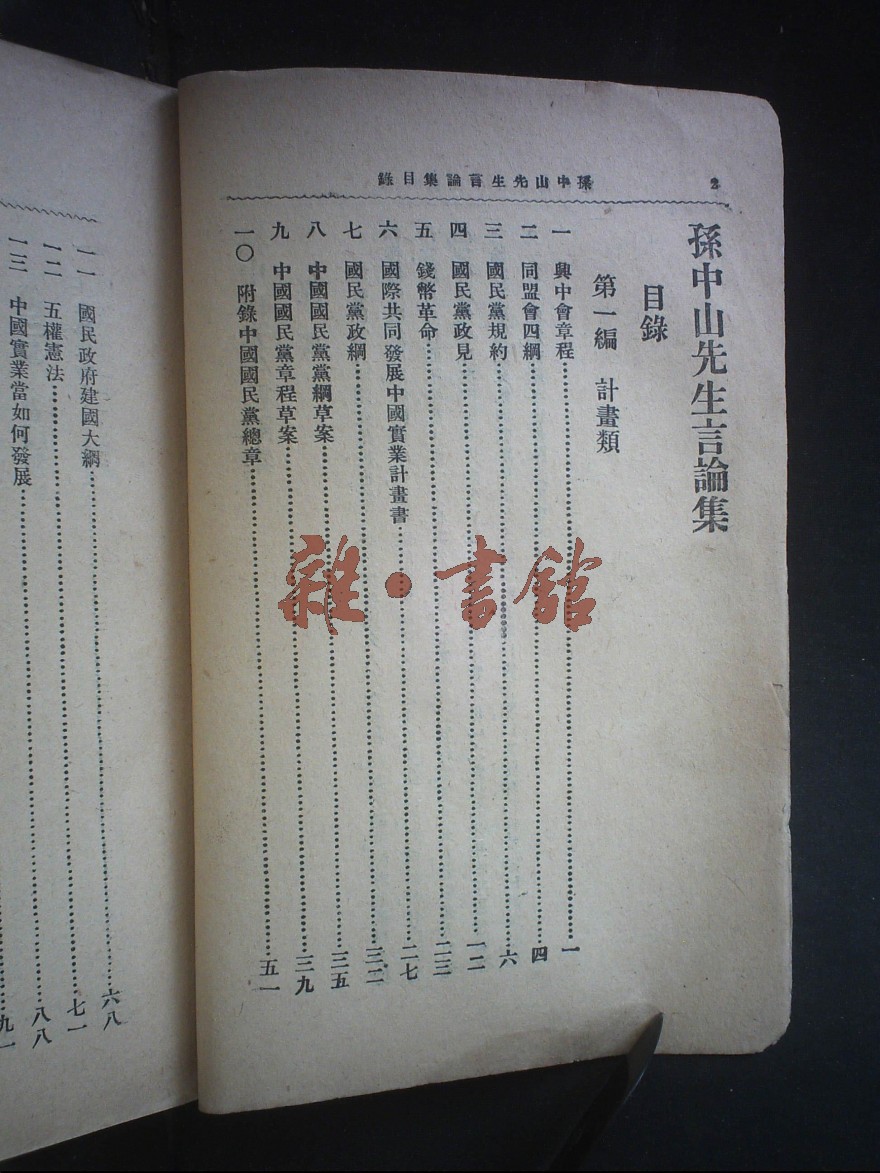 2
孫中山先生言論集目錄
孫中山先生言論集
目錄
第一編 計畫類
一 興中會章程……一
二 同盟會四綱……四
三 國民黨規約……六
四 國民黨政見……一二
五 錢幣革命……二三
六 國際共同發展中國實業計畫書……二七
七 國民黨政綱……三二
八 中國國民黨黨綱草案……三五
九 中國國民黨章程草案……三九
一〇 附錄中國國民黨總章……五一
一一 國民政府建國大綱……六八
一二 五權憲法……七一
一三 中國實業當如何發展……八八
九一
雜·書館